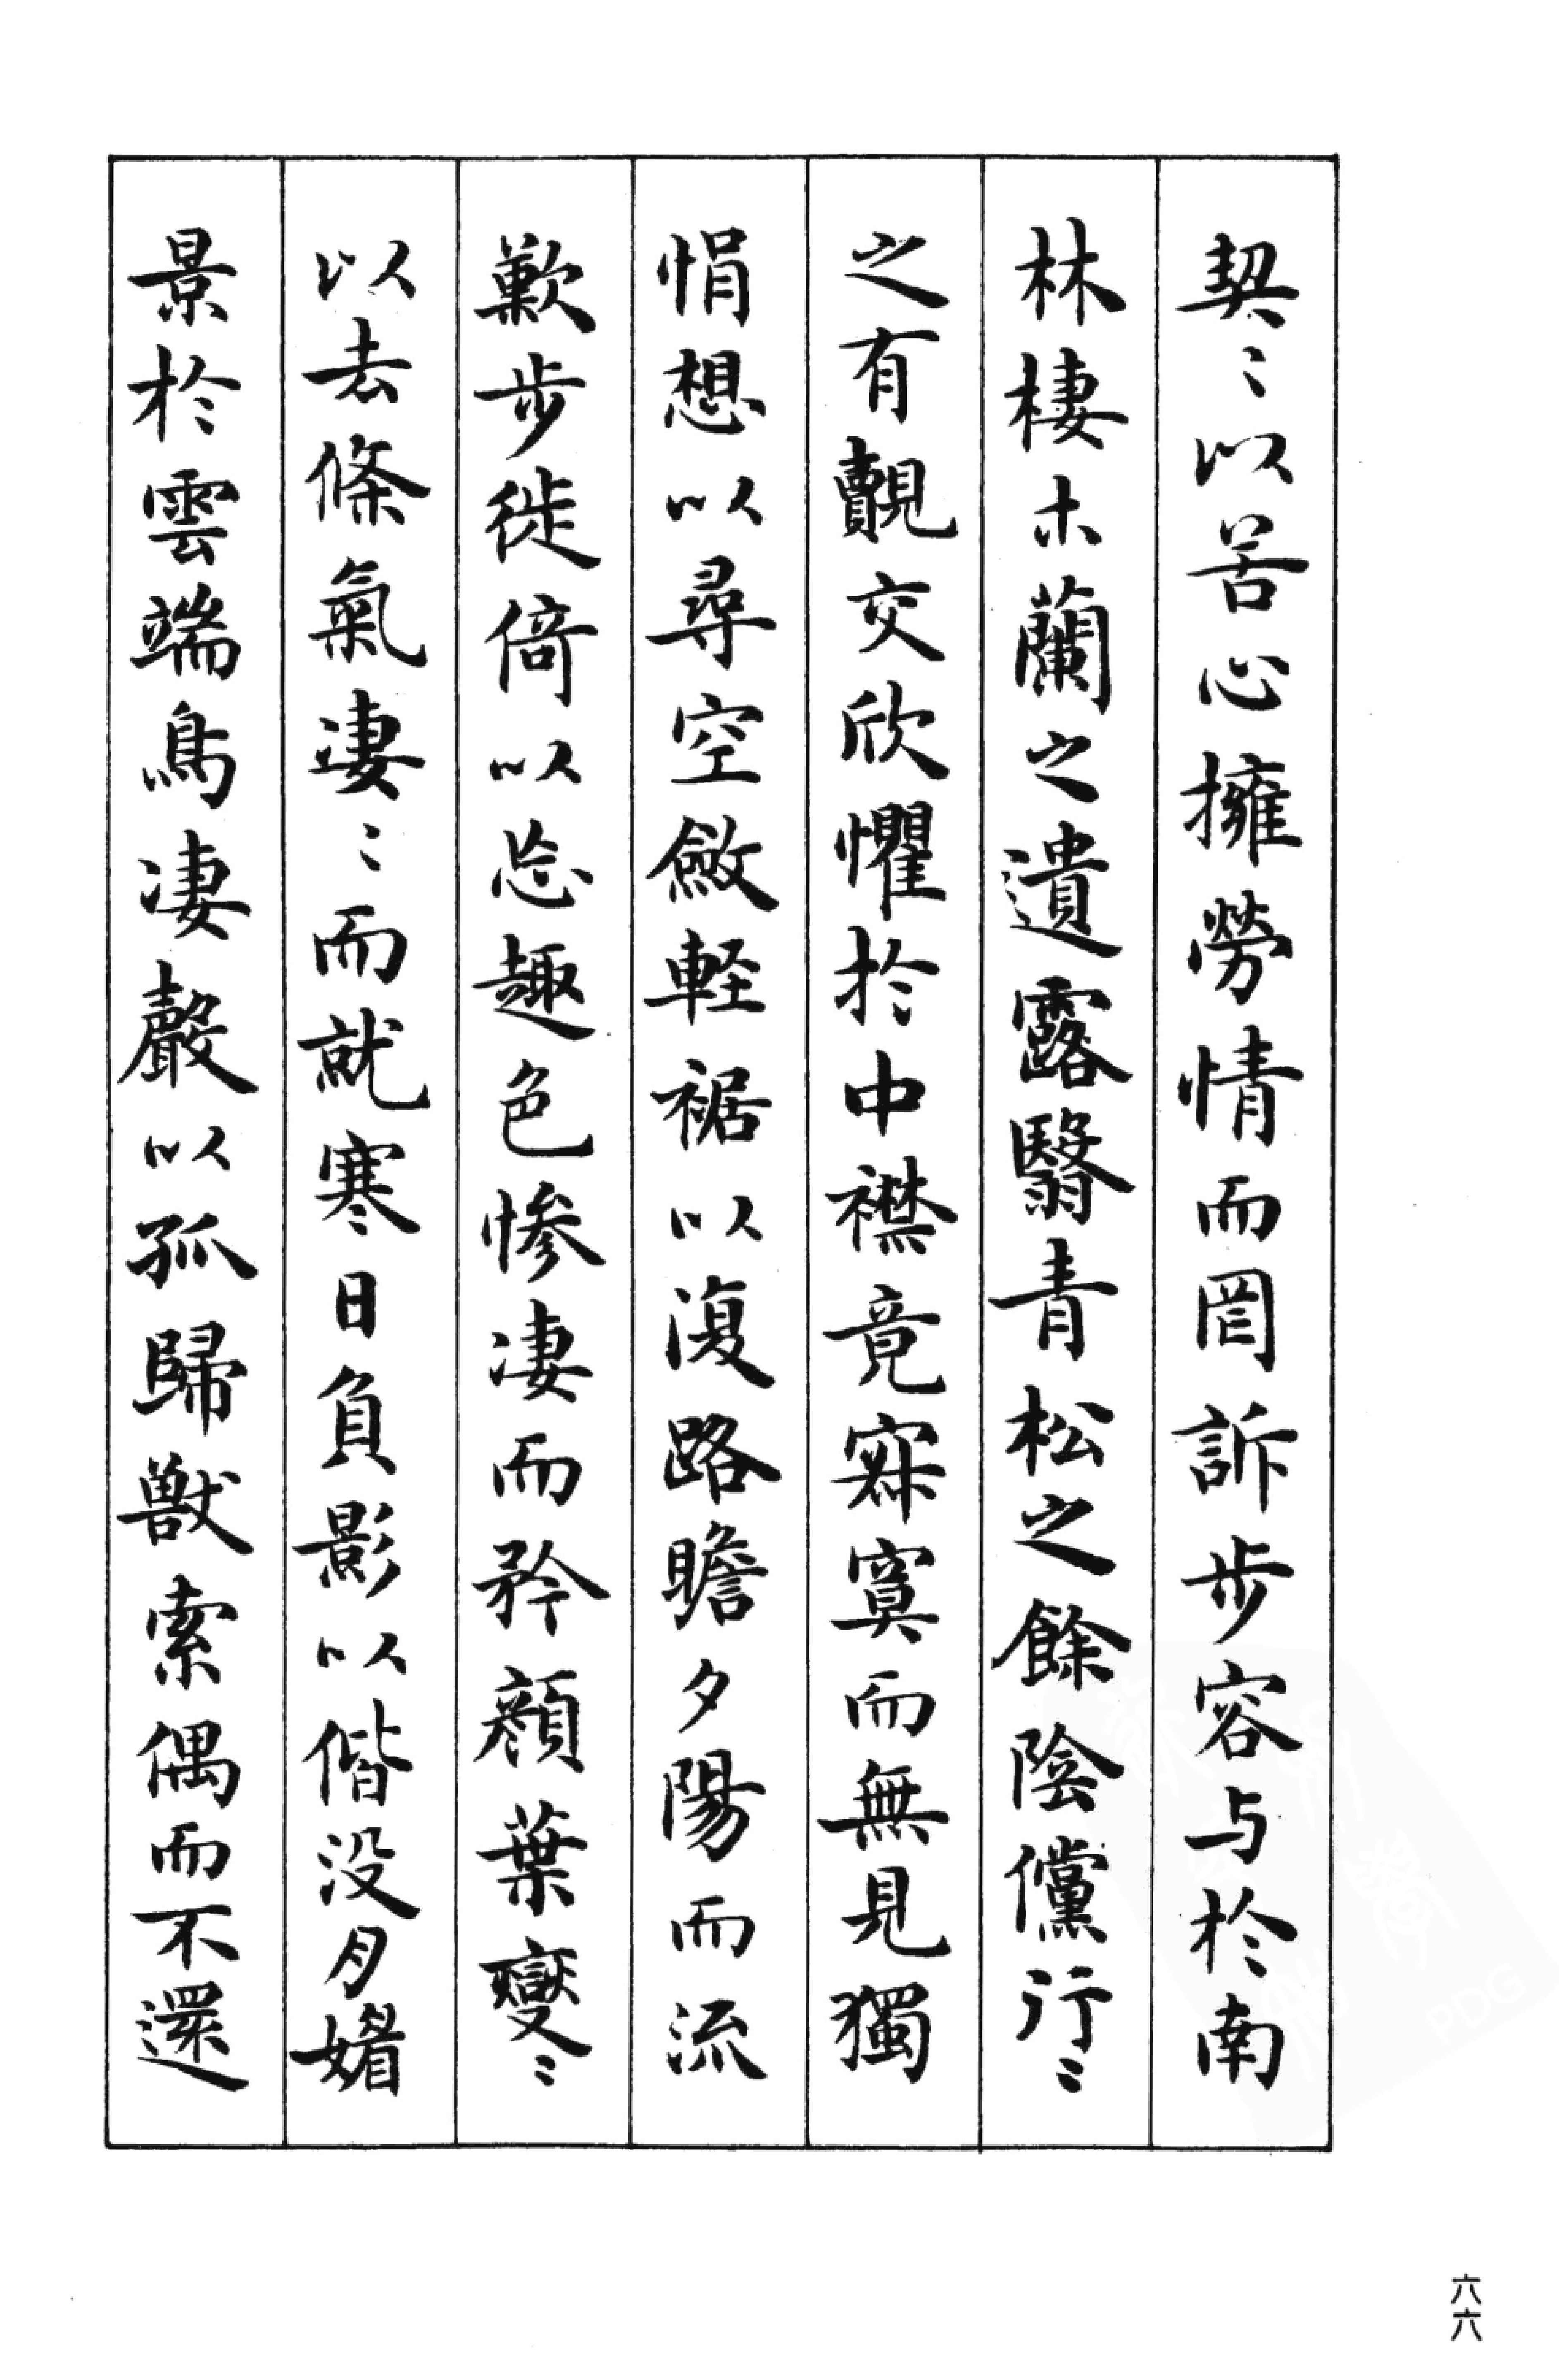 契〻以苦心擁勞情而罔訴步容与於南
林棲木蘭之遺露翳青松之餘陰儻行〻
之有覿交欣懼於中襟竟寂寞而無見獨
悁想以尋空斂軽裾以復路瞻夕陽而流
歎步徙倚以忘趣色惨凄而矜顔葉變〻
以去條氣凄〻而就寒日負影以偕没月媚
景於雲端鳥凄聲以孤歸獸索偶而不還
六六